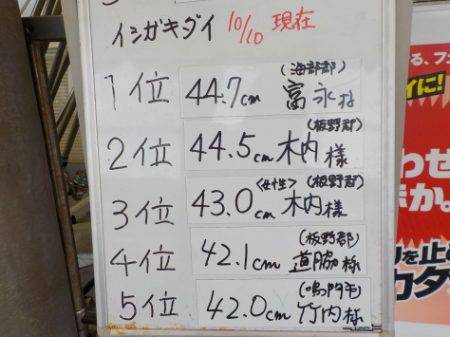 イシガキダイ 10/10 現在
(海部郡)
1位 44.7cm 富永様
(板野郡)
2位 44.5cm 木内様
(女性) (板野郡)
3位 43.0cm 木内様
(板野郡)
4位 42.1cm 道脇様
(鳴門市)
5位 42.0cm 竹内様
る、フ
イに!
わせ
か。
を止
カタ